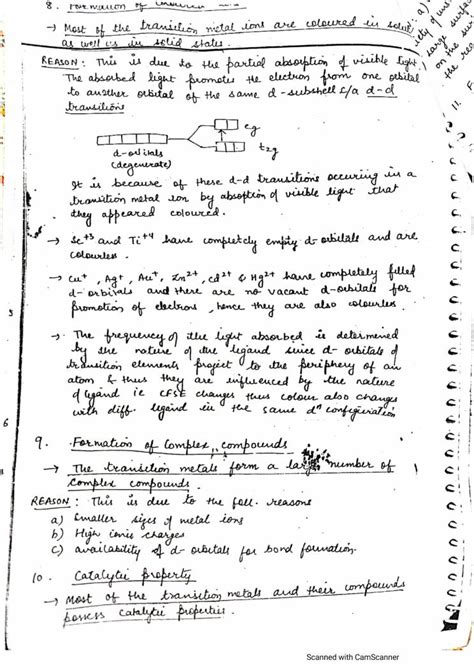 8. Formation of
→ Most of the transition metal ions are coloured in
as well as in solid states.
REASON : This is due to the partial absorption of visible light
The absorbed light promotes the electron from one orbital
to another orbital of the same d-subshell d-d
transitions
eg
t2g
d-orbitals
(degenerate)
It is because of these d-d transitions occuring in a
transition metal ion by absorption of visible light that
they appeared coloured.
→ Sc+3 and Ti+4 have completely empty d-orbitals and are
colourless.
→ Cu+, Ag+, Au+, Zn2+, Cd2+ & Hg2+ have completely filled
d-orbitals and there are no vacant d-orbitals for
promotion of electrons, hence they are also colourless.
→ The frequency of the light absorbed is determined
by the nature of the ligand since d-orbitals of
transition elements project to the periphery of an
atom & thus they are influenced by the nature
of ligand ie CFSE changes thus colour also changes
with diff. ligand in the same dn configuration
9. Formation of Complex compounds
→ The transition metals form a large number of
complex compounds.
REASON : This is due to the foll. reasons
a) Smaller sizes of metal ions
b) High ionic charges
c) availability of d-orbitals for bond formation.
10. Catalytic property
→ Most of the transition metals and their compounds
possess catalytic properties.
a)
ity of
large surface
on the
the
11. F
5
6
Scanned with CamScanner